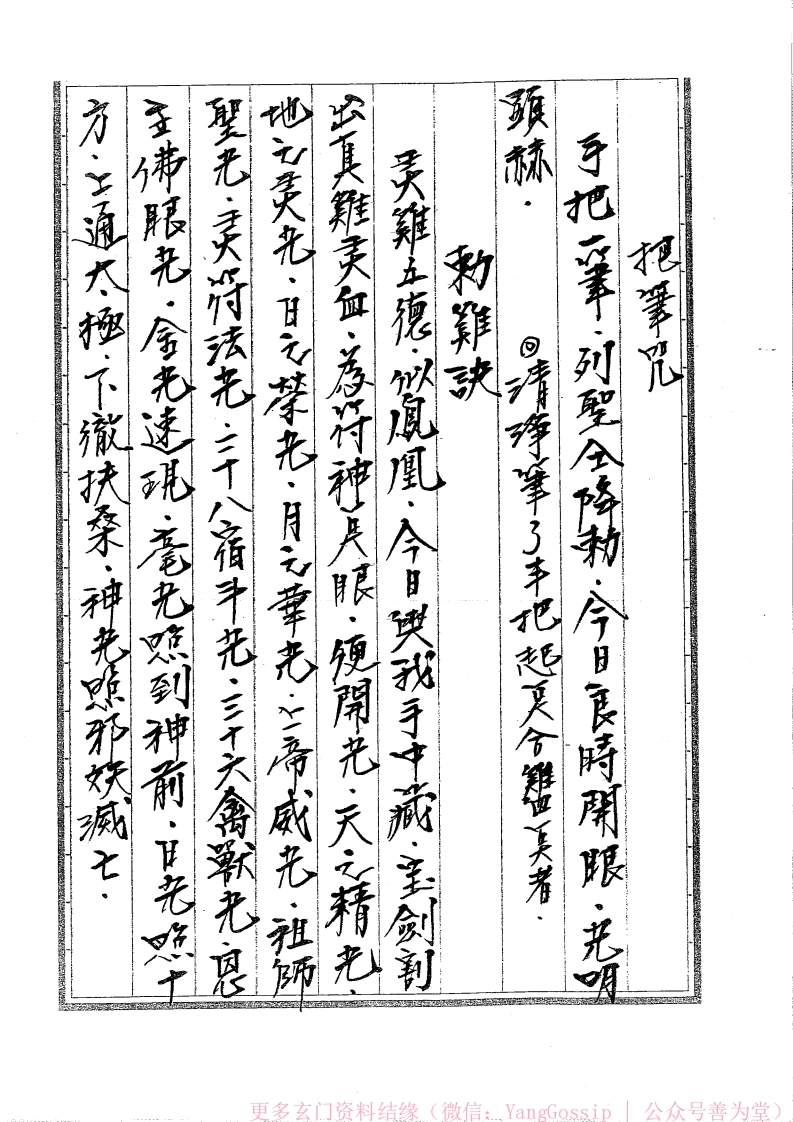 把筆咒
手把一筆．列聖全降勅．今日良時開眼．光明
顯赫．
清淨筆了手把起 合雞血 者．
勅雞訣
灵雞五德．似鳳凰．今日與我手中藏．宝劍割
出真雞灵血．為符神点眼．便開光．天之精光．
地之灵光．日之榮光．月之華光．上帝威光．祖師
聖光．灵符法光．二十八宿斗光．三十六禽獸光．恩
主佛眼光．金光速現．毫光照到神前．日光照十
方．上通太極．下徹扶桑．神光照邪妖滅亡．
更多玄门资料结缘（微信：YangGossip | 公众号善为堂）